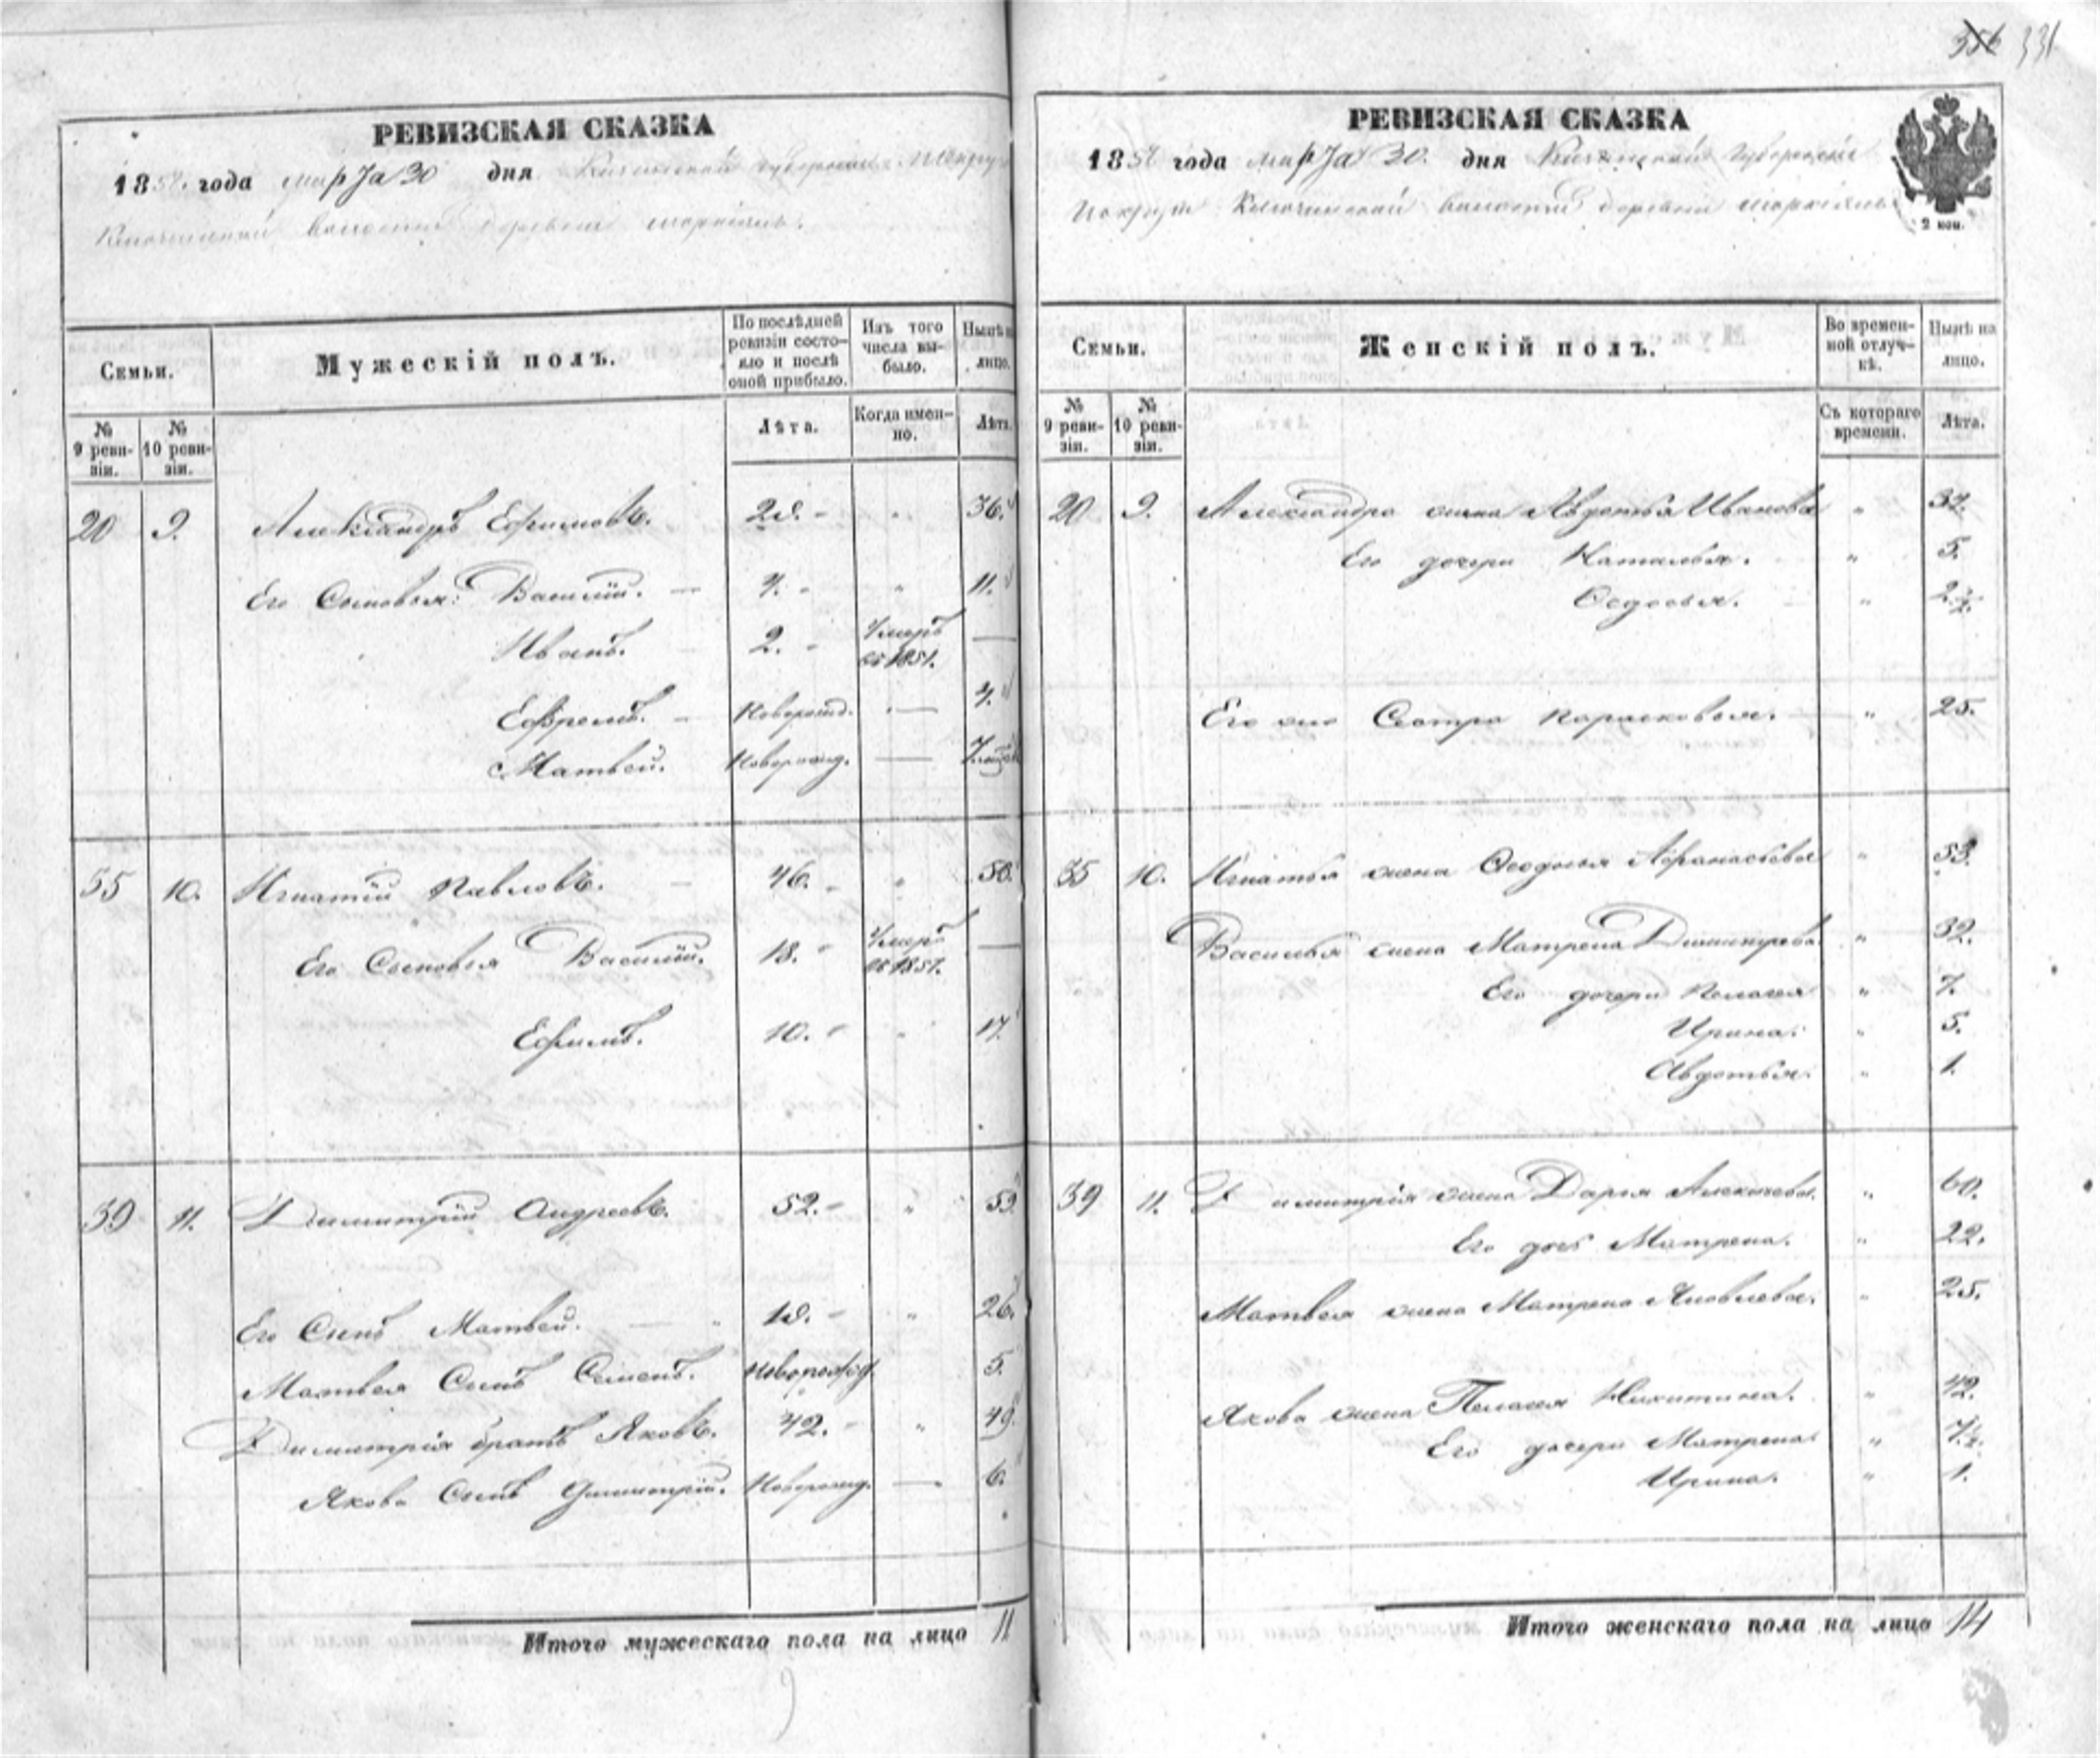 356 331
РЕВИЗСКАЯ СКАЗКА
1858 года марта 30 дня губернии
волости деревни
Семьи.
Мужескій полъ.
По послѣдней ревизіи состояло и послѣ оной прибыло.
Изъ того числа выбыло.
Нынѣ на лицо.
№ 9 ревизіи.
№ 10 ревизіи.
Лѣта.
Когда именно.
Лѣта.
20 9. Александръ Ефимовъ. 29. " 36.
Его Сыновья: Василій. — 4. " 11.
Иванъ. 2. Умеръ въ 1851. —
Ефремъ. Новорожд. — 4.
Матвей. Новорожд. —
35 10. Игнатій Павловъ. — 46. "
Его Сыновья Василій. 18. Умеръ въ 1857. —
Ефимъ. 10. " 17.
39 11. Димитрій Андреевъ. 52. " 59.
Его Сынъ Матвей. — 19. " 26.
Матвея Сынъ Семенъ. Новорожд. 5.
Димитрія братъ Яковъ. 42. " 49.
Якова Сынъ Димитрій. Новорожд. — 6.
Итого мужескаго пола на лицо 11
9
РЕВИЗСКАЯ СКАЗКА
1858 года марта 30. дня губерніи
волости деревни
2 коп.
Семьи.
Женскій полъ.
Во временной отлучкѣ.
Нынѣ на лицо.
№ 9 ревизіи.
№ 10 ревизіи.
Съ котораго времени.
Лѣта.
20 9. Александра жена Авдотья Иванова "
Его дочери Наталья. " 5.
Федосья. "
Его же Сестра Парасковья. " 25.
35 10. Игнатья жена Федосья Афанасьева " 53.
Василья жена Матрена Димитрева " 32.
Его дочери Пелагея " 7.
Ирина. " 5.
Авдотья. " 1.
39 11. Димитрія жена Дарья Алексеева. " 60.
Его дочь Матрена. " 22.
Матвея жена Матрена Яковлева. " 25.
Якова жена Пелагея Никитина. " 42.
Его дочери Матрена "
Ирина. " 1.
Итого женскаго пола на лицо 14